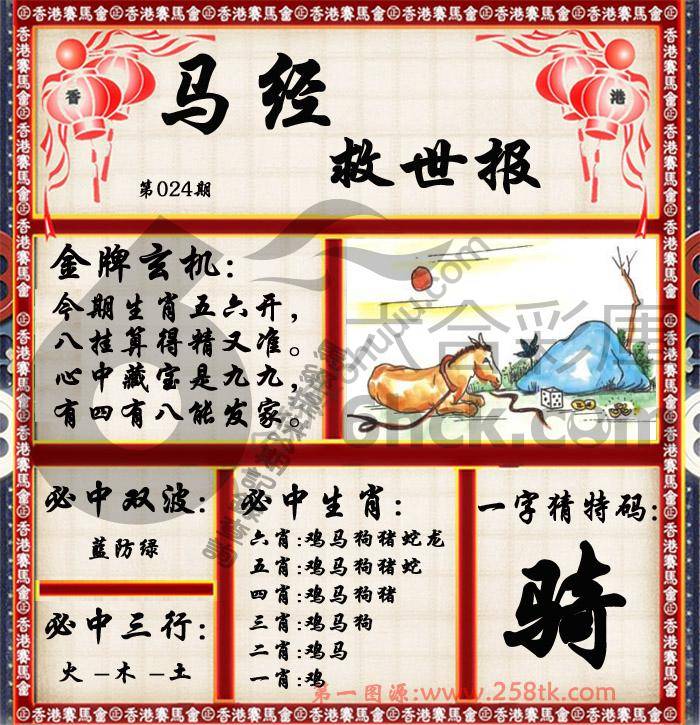 香港賽馬會
香
港
马经
救世报
第024期
金牌玄机:
今期生肖五六开,
八挂算得精又准。
心中藏宝是九九,
有四有八能发家。
六合彩庫
6htck.com
必中双波:
蓝防绿
必中三行:
火-木-土
必中生肖:
六肖:鸡马狗猪蛇龙
五肖:鸡马狗猪蛇
四肖:鸡马狗猪
三肖:鸡马狗
二肖:鸡马
一肖:鸡
一字猜特码:
骑
第一图源:www.258tk.com